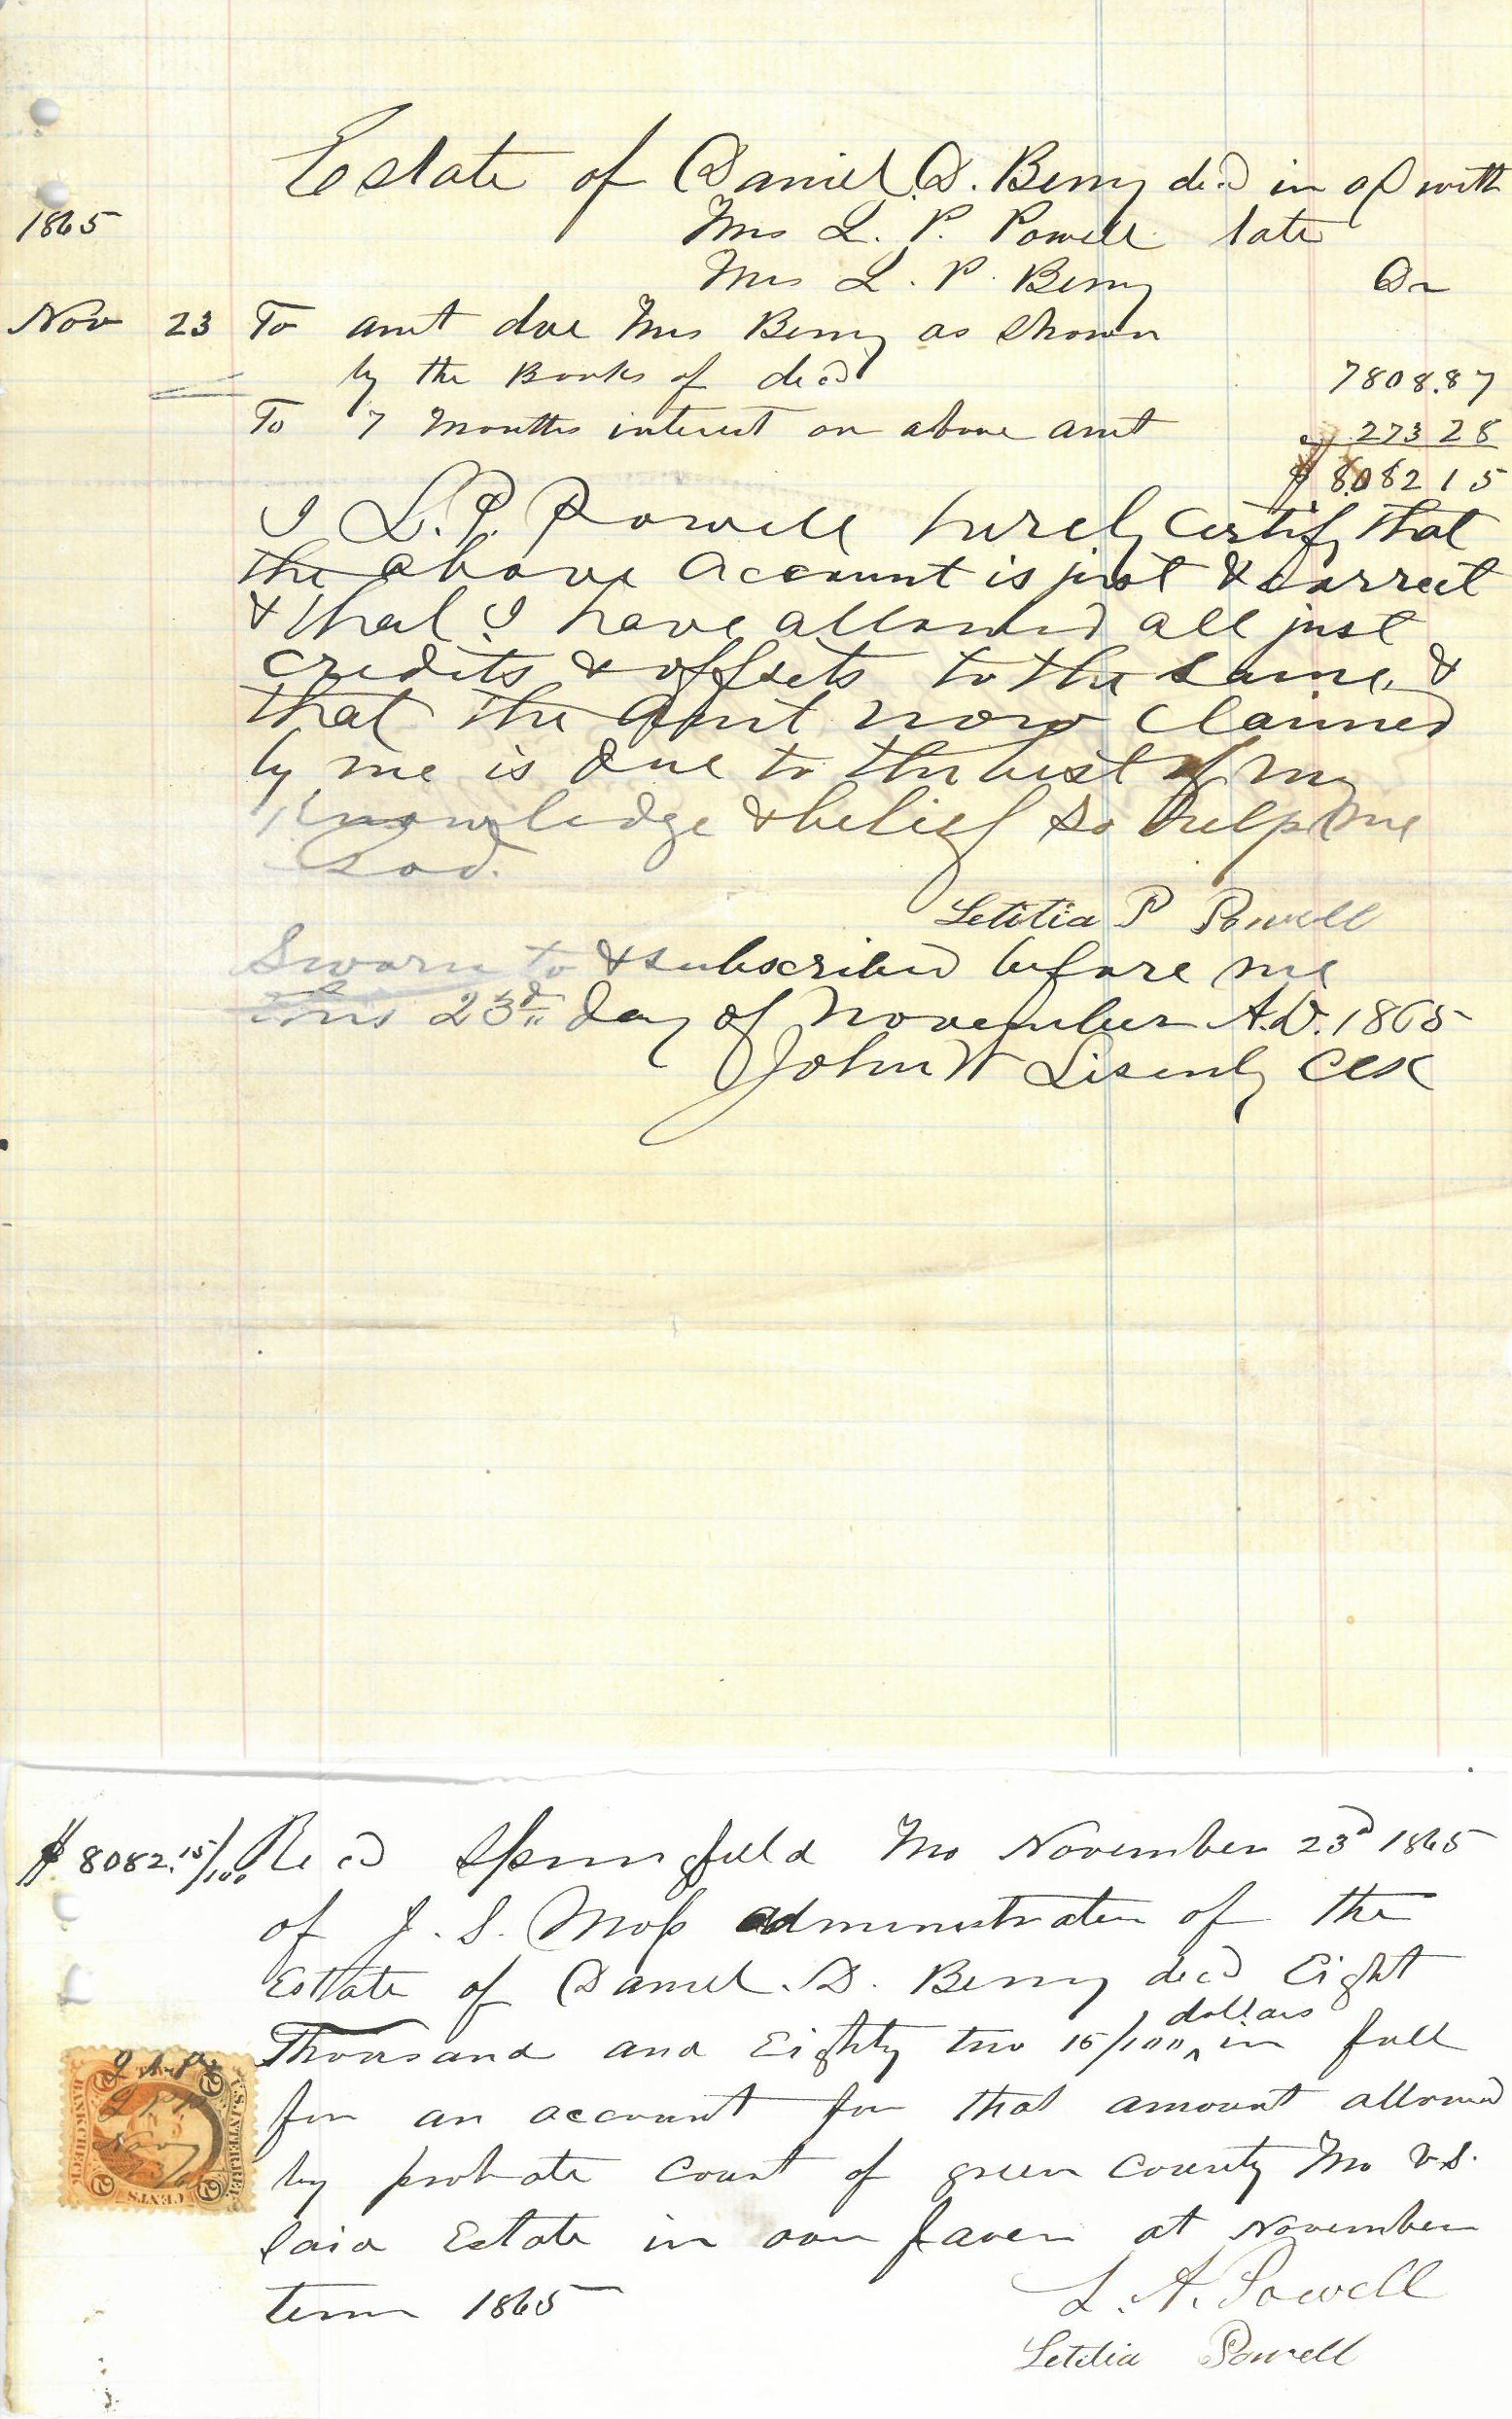 Estate of Daniel D. Berry decd in a/c with
1865
Mrs L. P. Powell late
Mrs L. P. Berry Dr
Nov 23 To amt due Mrs Berry as Shown
by the Books of decd 7808.87
To 7 Months interest on above amt 273 28
$ 8082 15
I L. P. Powell hereby certify that
the above account is just & correct
& that I have allowed all just
credits & offsets to the same, &
that the amt now claimed
by me is due to the best of my
Knowledge & belief So help me
God.
Letitia P Powell
Sworn to & subscribed before me
this 23rd day of November A.D. 1865
John W Lisenby Clk
$ 8082.15/100 Recd Springfield Mo November 23d 1865
of J. S. Moss administrator of the
Estate of Daniel. D. Berry decd Eight
Thousand and Eighty two 15/100 dollars in full
for an account for that amount allowed
by probate Court of green County Mo vs.
said Estate in our favor at November
term 1865
L. A. Powell
Letitia Powell
U.S. INTER. REV.
BANK CHECK
2 CENTS 2
L A P
L P P
Nov